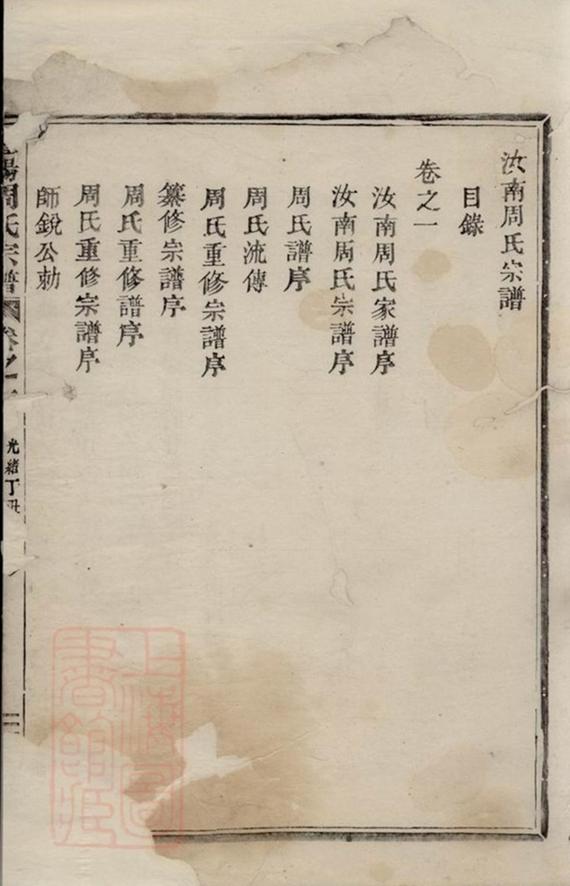 汝南周氏宗譜
目錄
卷之一
汝南周氏家譜序
汝南周氏宗譜序
周氏譜序
周氏流傳
周氏重修宗譜序
纂修宗譜序
周氏重修譜序
周氏重修宗譜序
師銳公勅
陽周氏宗譜
卷之一
光緒丁丑
上海圖書館藏